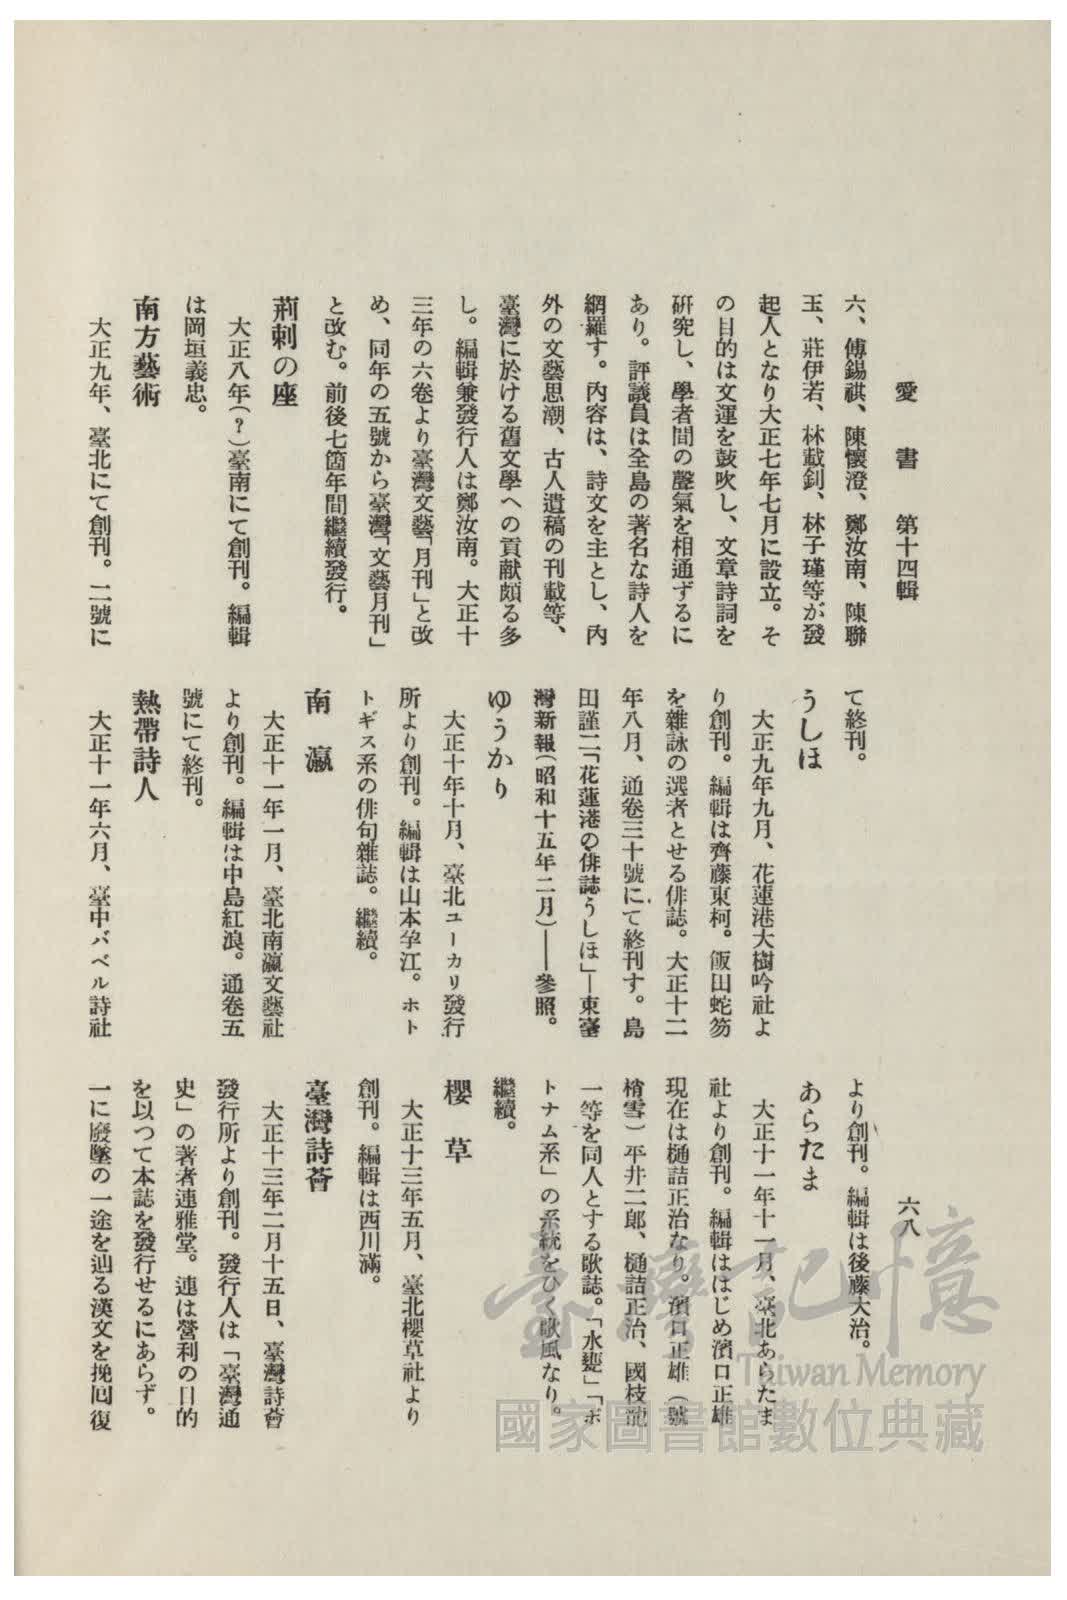 愛書　第十四輯
六、傅錫祺、陳懷澄、鄭汝南、陳聯
玉、莊伊若、林載釗、林子瑾等が發
起人となり大正七年七月に設立。そ
の目的は文運を鼓吹し、文章詩詞を
研究し、學者間の聲氣を相通ずるに
あり。評議員は全島の著名な詩人を
網羅す。內容は、詩文を主とし、內
外の文藝思潮、古人遺稿の刊載等、
臺灣に於ける舊文學への貢献頗る多
し。編輯兼發行人は鄭汝南。大正十
三年の六卷より臺灣文藝「月刊」と改
め、同年の五號から臺灣「文藝月刊」
と改む。前後七箇年間繼續發行。
荊刺の座
大正八年(？)臺南にて創刊。編輯
は岡垣義忠。
南方藝術
大正九年、臺北にて創刊。二號に
て終刊。
うしほ
大正九年九月、花蓮港大樹吟社よ
り創刊。編輯は齊藤東柯。飯田蛇笏
を雜詠の選者とせる俳誌。大正十二
年八月、通卷三十號にて終刊す。島
田謹二「花蓮港の俳誌うしほ」—東臺
灣新報(昭和十五年二月)——參照。
ゆうかり
大正十年十月、臺北ユーカリ發行
所より創刊。編輯は山本孕江。ホト
トギス系の俳句雜誌。繼續。
南瀛
大正十一年一月、臺北南瀛文藝社
より創刊。編輯は中島紅浪。通卷五
號にて終刊。
熱帶詩人
大正十一年六月、臺中バベル詩社
より創刊。編輯は後藤大治。
あらたま
大正十一年十一月、臺北あらたま
社より創刊。編輯ははじめ濱口正雄
現在は樋詰正治なり。濱口正雄(號
梢雪)平井二郎、樋詰正治、國枝龍
一等を同人とする歌誌。「水甕」「ポ
トナム系」の系統をひく歌風なり。
繼續。
櫻草
大正十三年五月、臺北櫻草社より
創刊。編輯は西川滿。
臺灣詩薈
大正十三年二月十五日、臺灣詩薈
發行所より創刊。發行人は「臺灣通
史」の著者連雅堂。連は營利の目的
を以つて本誌を發行せるにあらず。
一に廢墜の一途を辿る漢文を挽回復
六八
臺灣記憶
Taiwan Memory
國家圖書館數位典藏